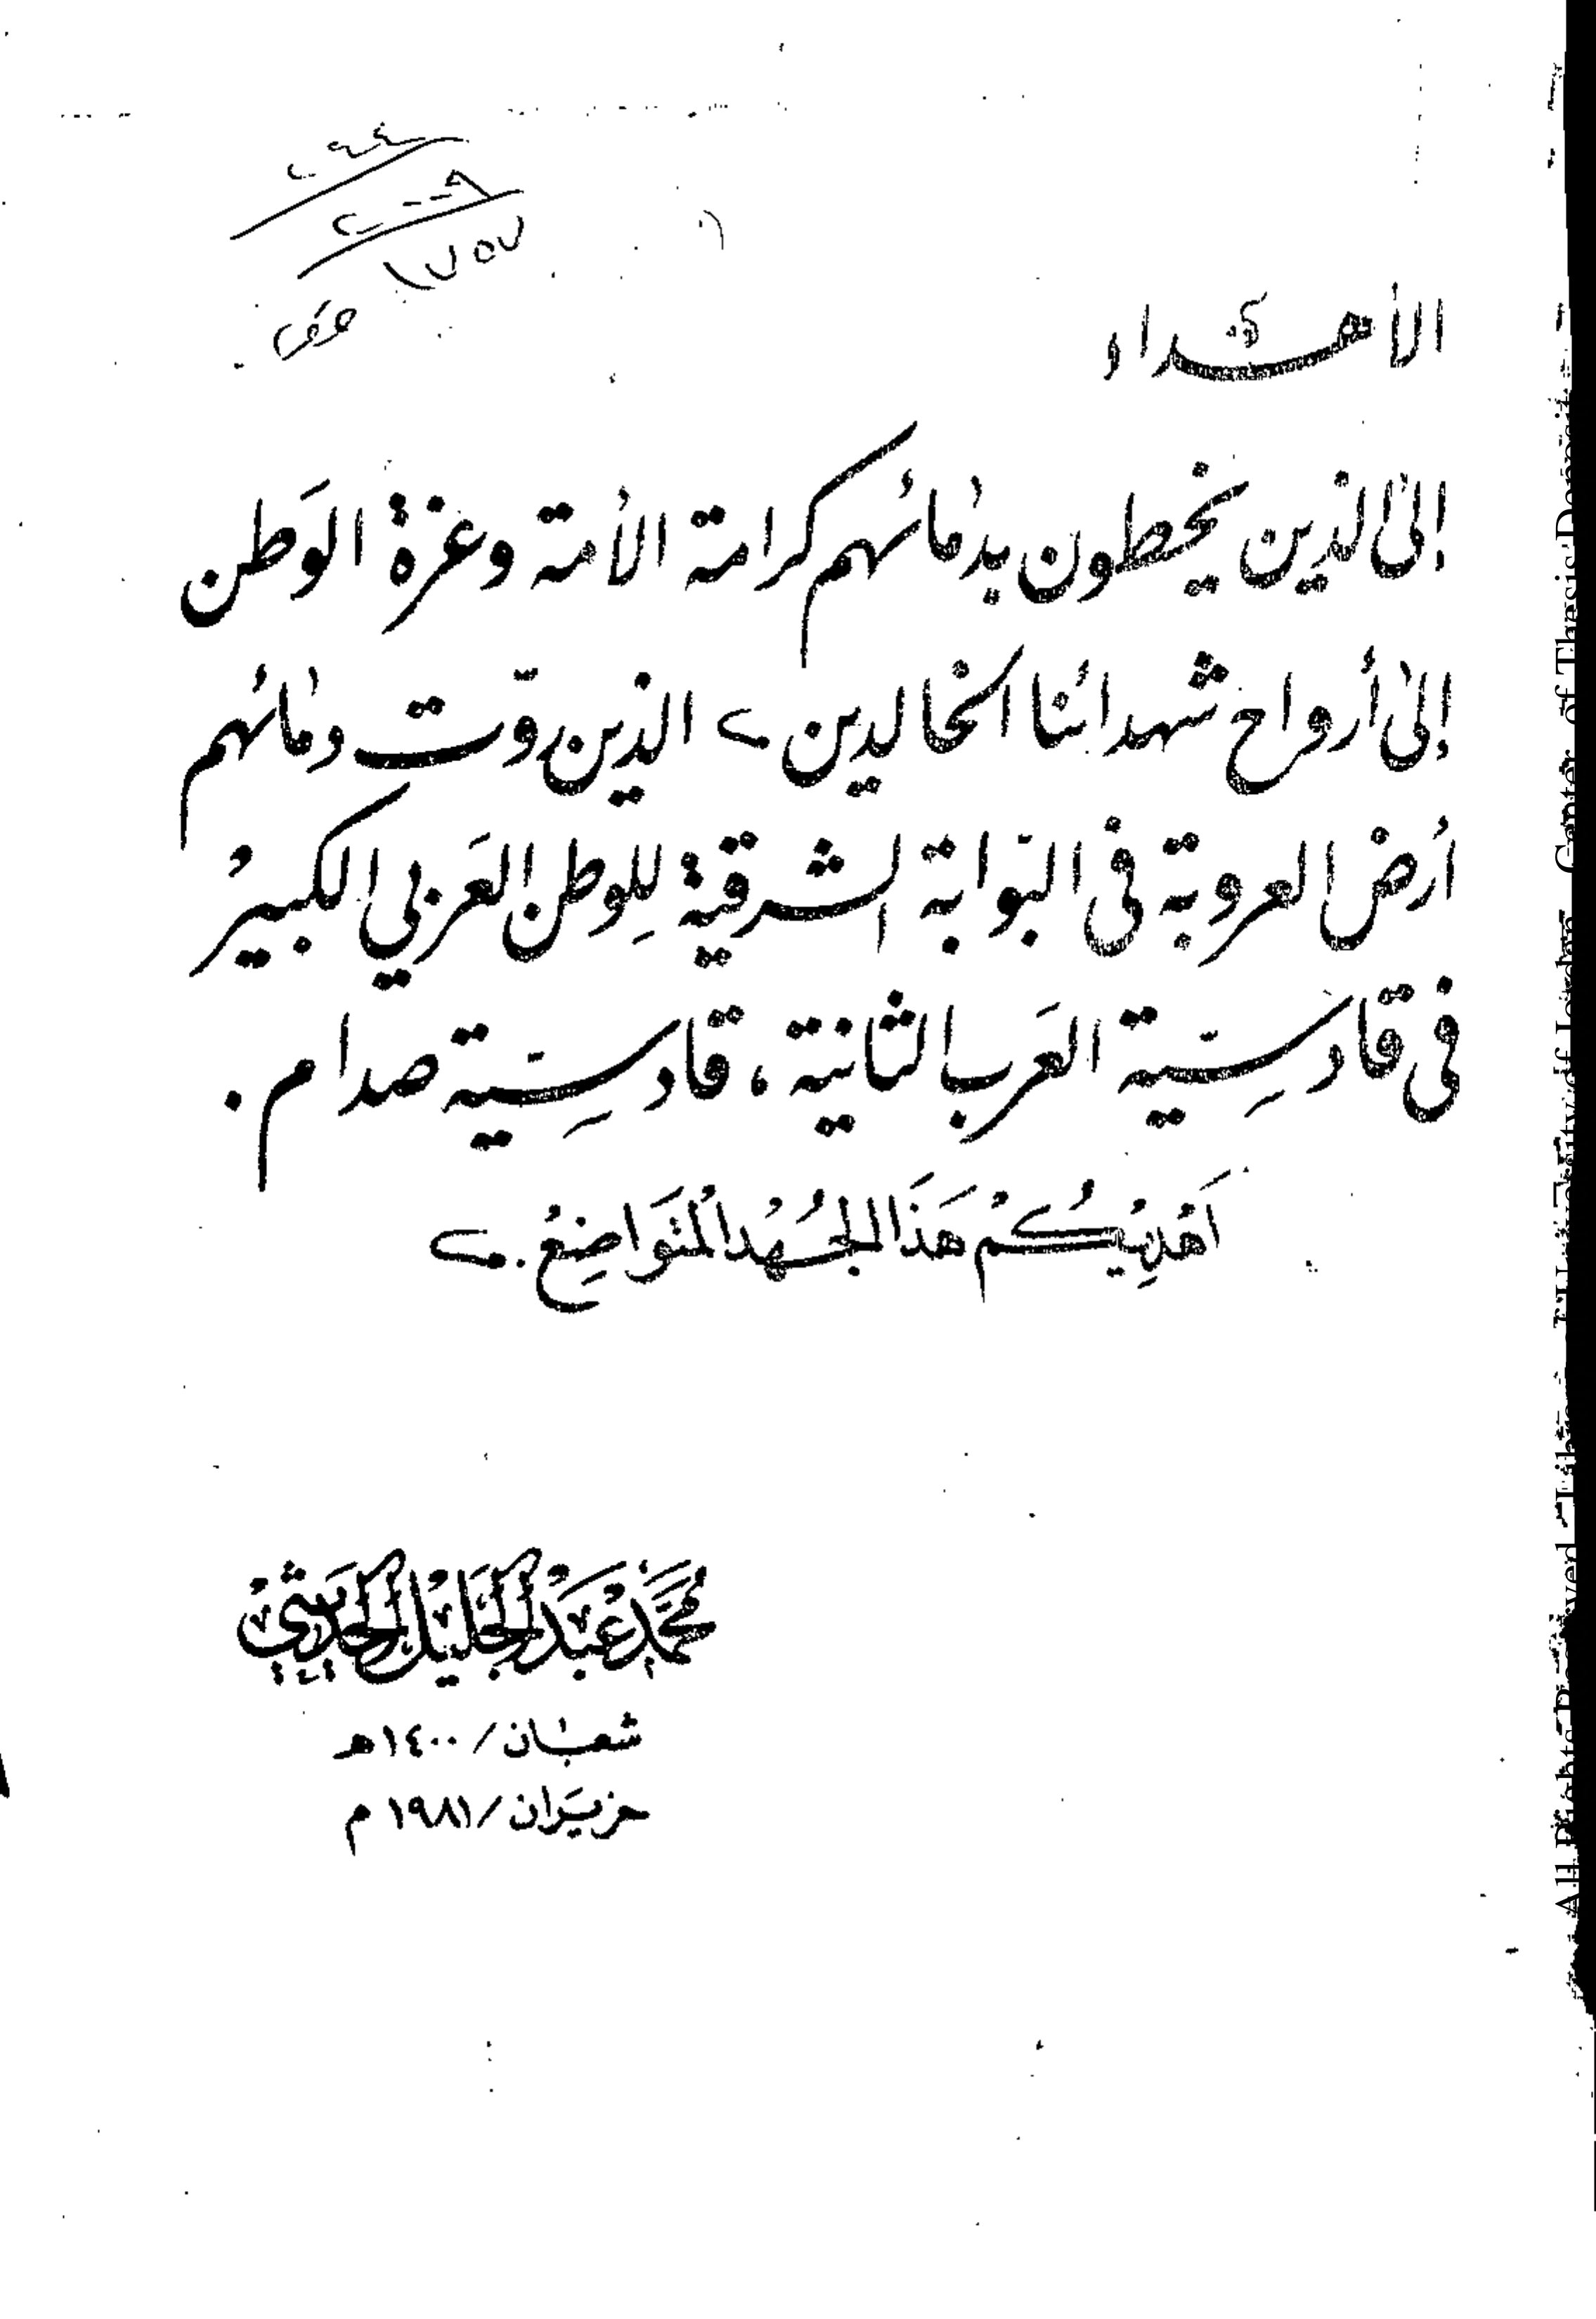 ١٧٥٧
الأهداء
إلى الذين يخطون بدمائهم كرامة الأمة وعزة الوَطن
إلى أرواح شهدائنا الخالدين، الذين روّت دمائهم
أرض العروبة في البوّابة الشرقية لِلوطن العَربي الكبيرُ
في قادسِيّة العَرب الثانية، قادسِيّة صدام.
اَهْدِيْكُمْ هَذَا الجُهْدُ المُتَوَاضِعْ.
مُحَمَّدْ عَبْدُ الجَلِيْل الحَدِيْثِيْ
شعبان / ١٤٠٠ هـ
حزيَران / ١٩٨١ م
All Rights Reserved - Library of University of Jordan - Center of Thesis Deposit